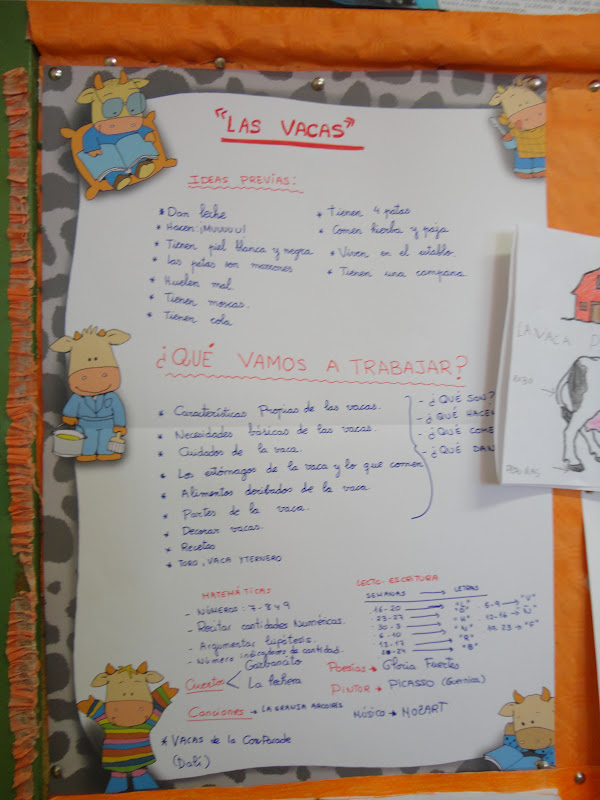 "LAS VACAS"
IDEAS PREVIAS:
* Dan leche
* Hacen: ¡Muuuuu!
* Tienen piel blanca y negra
* Las patas son marrones
* Huelen mal.
* Tienen moscas.
* Tienen cola
* Tienen 4 patas
* Comen hierba y paja
* Viven en el establo.
* Tienen una campana
¿QUÉ VAMOS A TRABAJAR?
* Características Propias de las vacas.
* Necesidades básicas de las vacas.
* Cuidados de la vaca.
* Los estómagos de la vaca y lo que comen
* Alimentos deribados de la vaca.
* Partes de la vaca.
* Decorar vacas.
* Recetas
* TORO, VACA Y TERNERO
- ¿QUÉ SON?
- ¿QUÉ HACEN
- ¿QUÉ COME
- ¿QUÉ DAN
MATEMÁTICAS
- NÚMEROS: 7-8 y 9
- Recitar cantidades Numéricas.
- Argumentar hipótesis.
- Número indicadores de cantidad.
Cuentos
Garbancito
La lechera
Canciones → LA GRANJA
* VACAS de la
(Dalí)
LECTO-ESCRITURA
SEMANAS → LETRAS
16-20 → "L"
23-27 →
30-3 →
6-10 →
13-17 → "R"
→ "B"
5-9 → "V"
12-16 → "Ñ"
23 → "F"
Poesías → Gloria Fuertes
PINTOR → PICASSO (Guernica)
MÚSICO → MOZART
LA VACA D